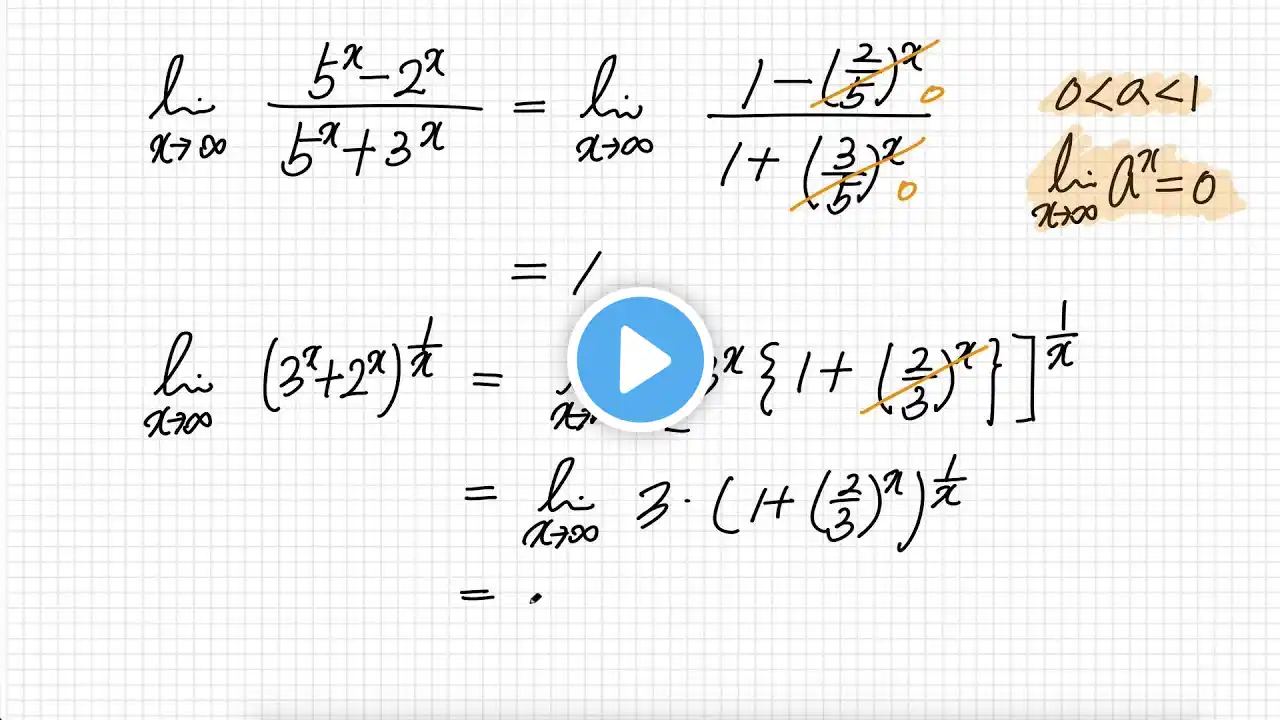 lim x→∞ (5^x − 2^x)/(5^x + 3^x) = lim x→∞ (1 − (2/5)^x 0)/(1 + (3/5)^x 0)
0 < a < 1
lim x→∞ a^x = 0
= 1
lim x→∞ (3^x + 2^x)^(1/x) = 3^x {1 + (2/3)^x} ]^(1/x)
= lim x→∞ 3 · (1 + (2/3)^x)^(1/x)
=